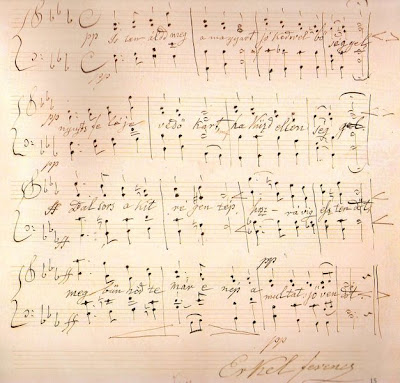 pp Is ten áldd meg a magyart jó kedvel bő ség gel
pp
nyujts fe léje védő kart, ha küzd ellen ség gel
pp
ff Bal sors a kit ré gen tép, hoz rá víg esz ten dőt,
ff
pp
ff meg bün hőd te már e nép a multat jö ven dőt
ff
pp
Erkel ferencz